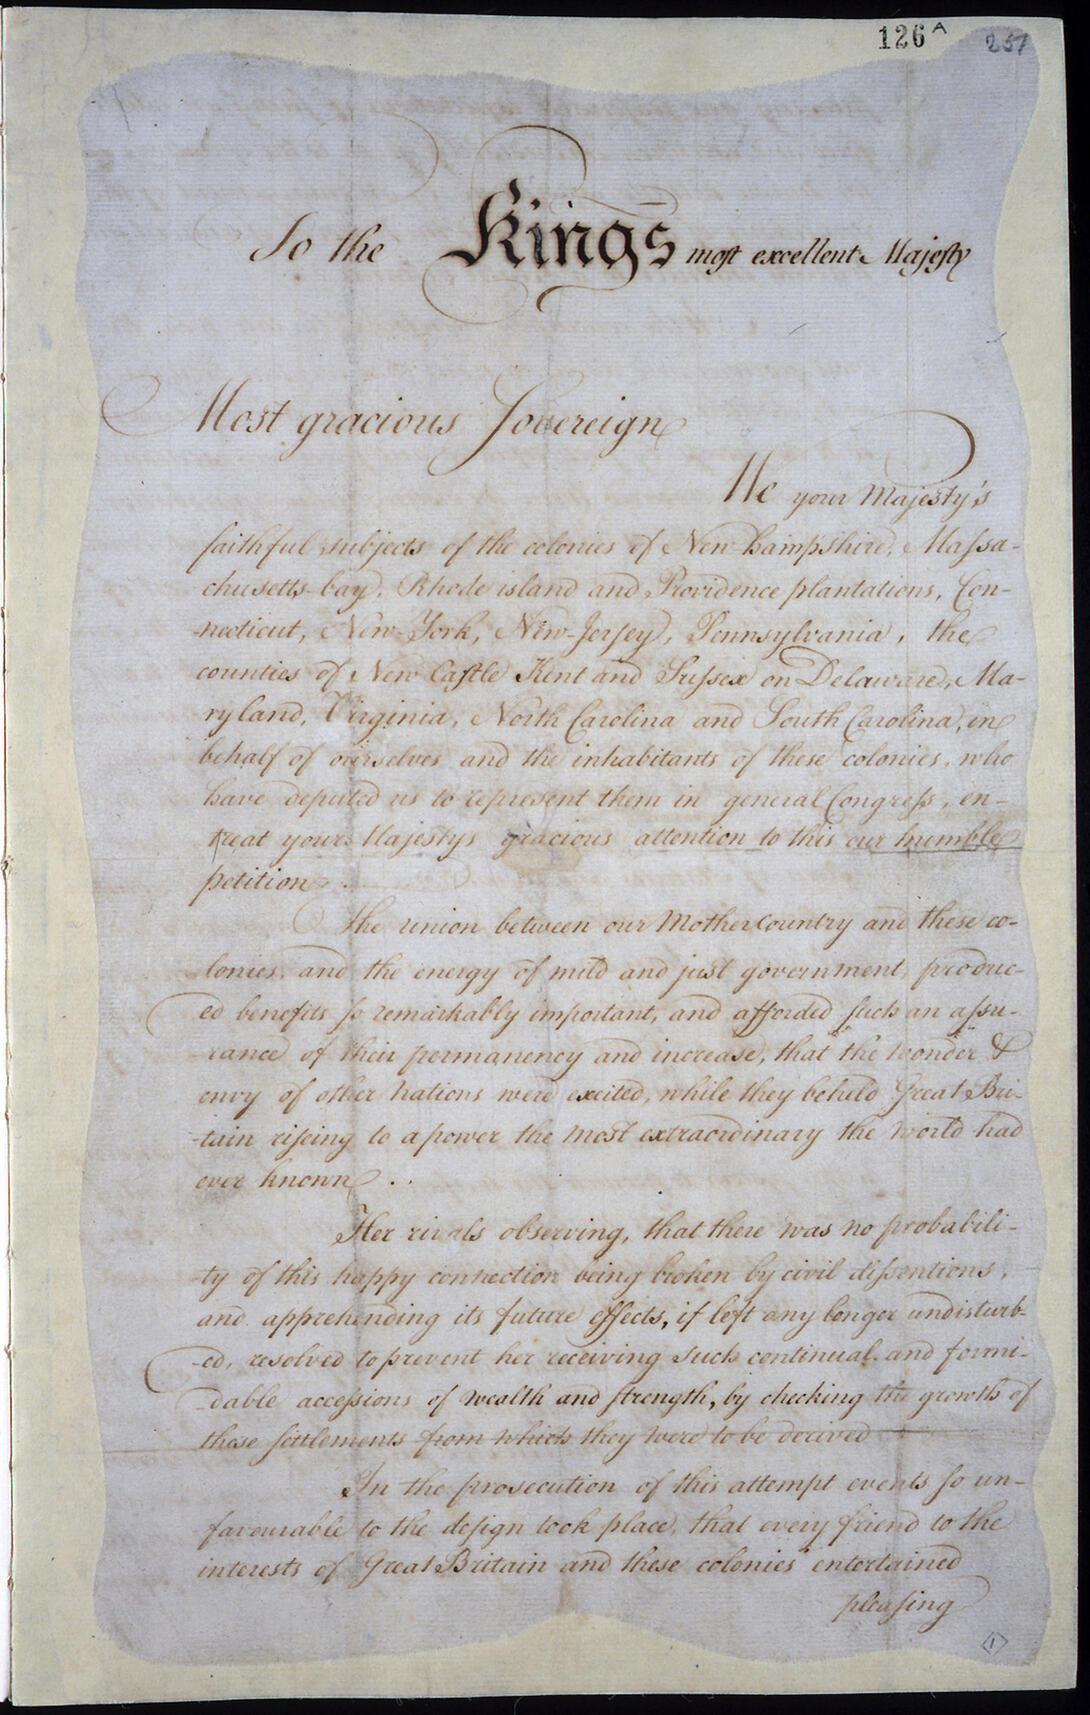 126 A 257
To the Kings most excellent Majesty
Most gracious Sovereign
We your Majesty's
faithful subjects of the colonies of New-hampshire, Massa-
chusetts-bay, Rhode island and Providence plantations, Con-
-necticut, New-York, New-Jersey, Pennsylvania, the
counties of New Castle Kent and Sussex on Delaware, Ma-
-ryland, Virginia, North Carolina and South Carolina, in
behalf of ourselves and the inhabitants of these colonies, who
have deputed us to represent them in general Congress, en-
treat your Majestys gracious attention to this our humble
petition.
The union between our Mother Country and these co-
lonies, and the energy of mild and just government, produc-
ed benefits so remarkably important, and afforded such an assu-
-rance of their permanency and increase, that the wonder &
envy of other Nations were excited, while they beheld Great Bri-
-tain riseing to a power the most extraordinary the world had
ever known.
Her rivals observing, that there was no probabili-
-ty of this happy connection being broken by civil dissentions,
and apprehending its future effects, if left any longer undisturb-
-ed, resolved to prevent her receiving such continual and formi-
-dable accessions of wealth and strength, by checking the growth of
these settlements from which they were to be derived
In the prosecution of this attempt events so un-
favourable to the design took place, that every friend to the
interests of Great Britain and these colonies entertained
pleasing
1